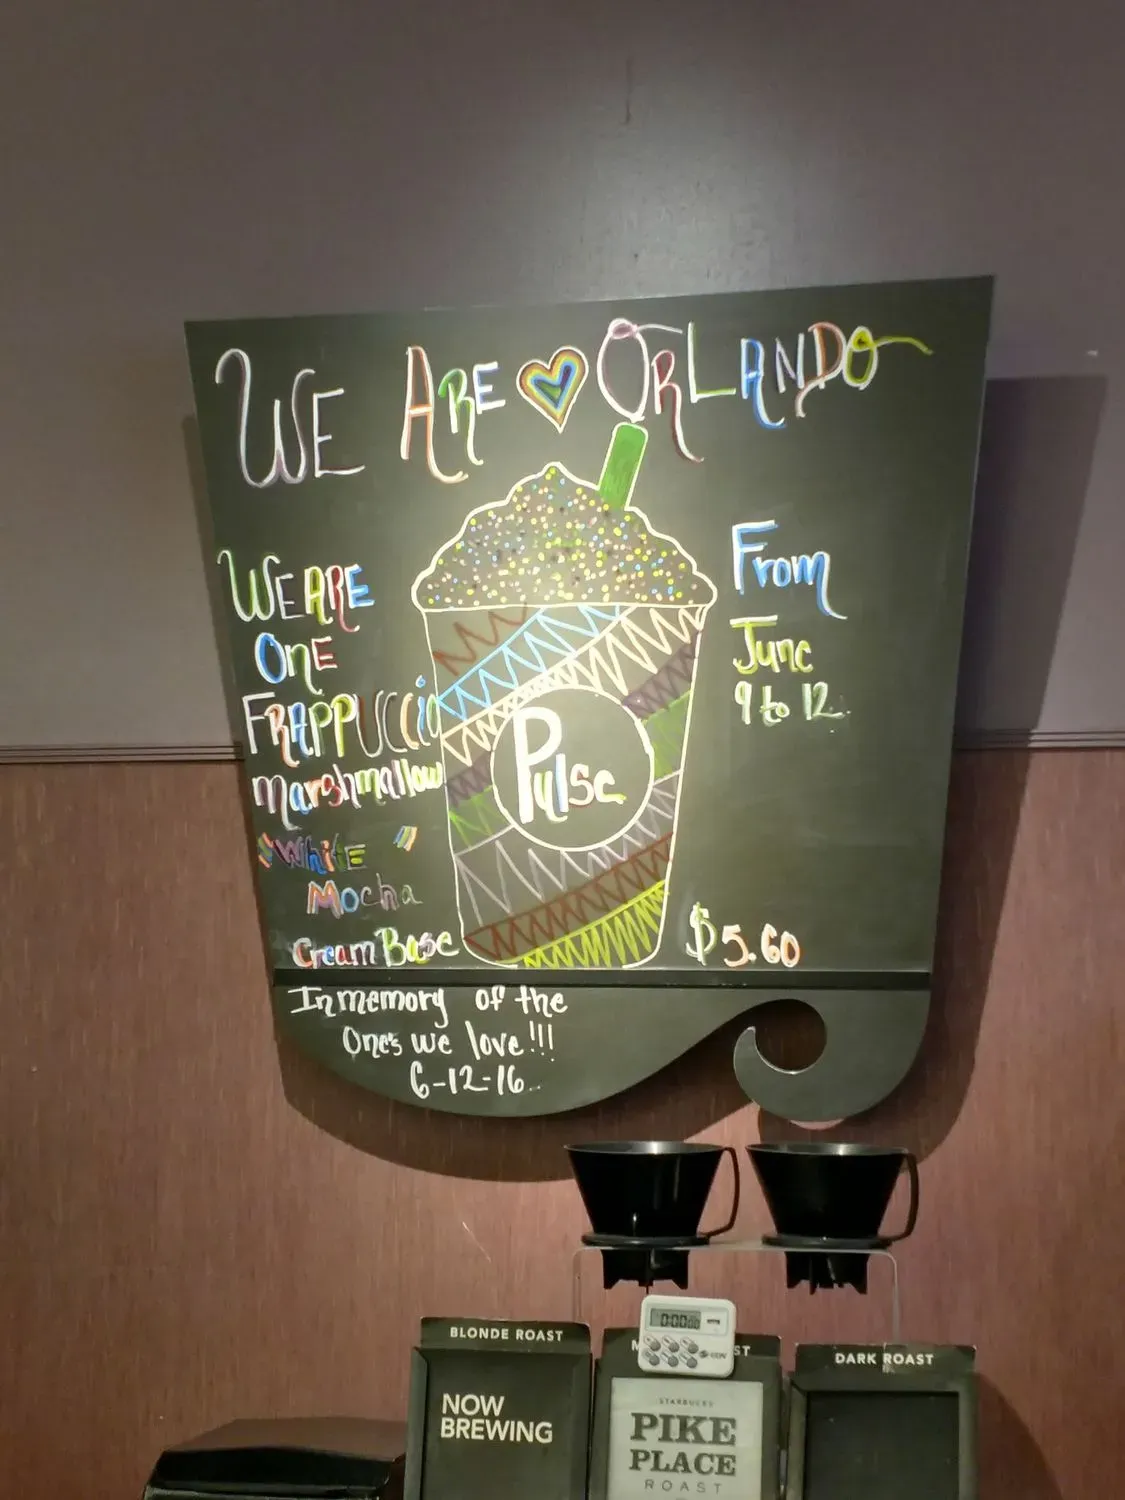 WE ARE ORLANDO
WE ARE
ONE
FRAPPUCCIO
marshmallow
"WhiTE"
Mocha
Cream Base
Pulse
From
June
9 to 12.
$5.60
In memory of the
One's we love!!!
6-12-16..
BLONDE ROAST
NOW
BREWING
0:00
STARBUCKS
PIKE
PLACE
ROAST
DARK ROAST